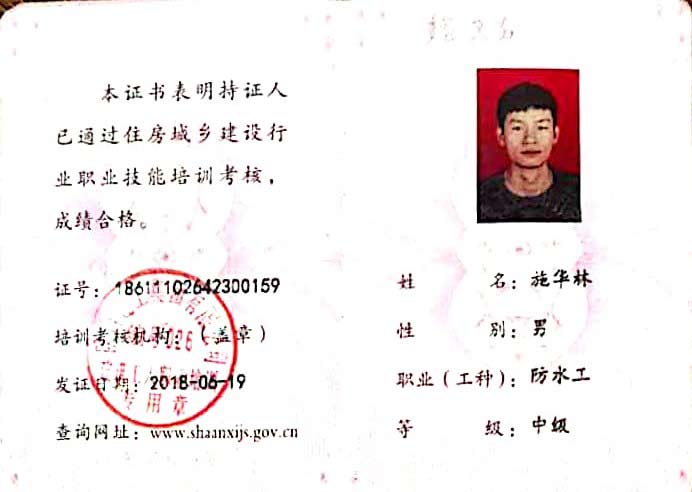 本证书表明持证人
已通过住房城乡建设行
业职业技能培训考核，
成绩合格。
证号：18611102642300159
培训考核机构：（盖章）
发证日期：2018-06-19
查询网址：www.shaanxijs.gov.cn
专用章
姓名：施华林
性别：男
职业（工种）：防水工
等级：中级